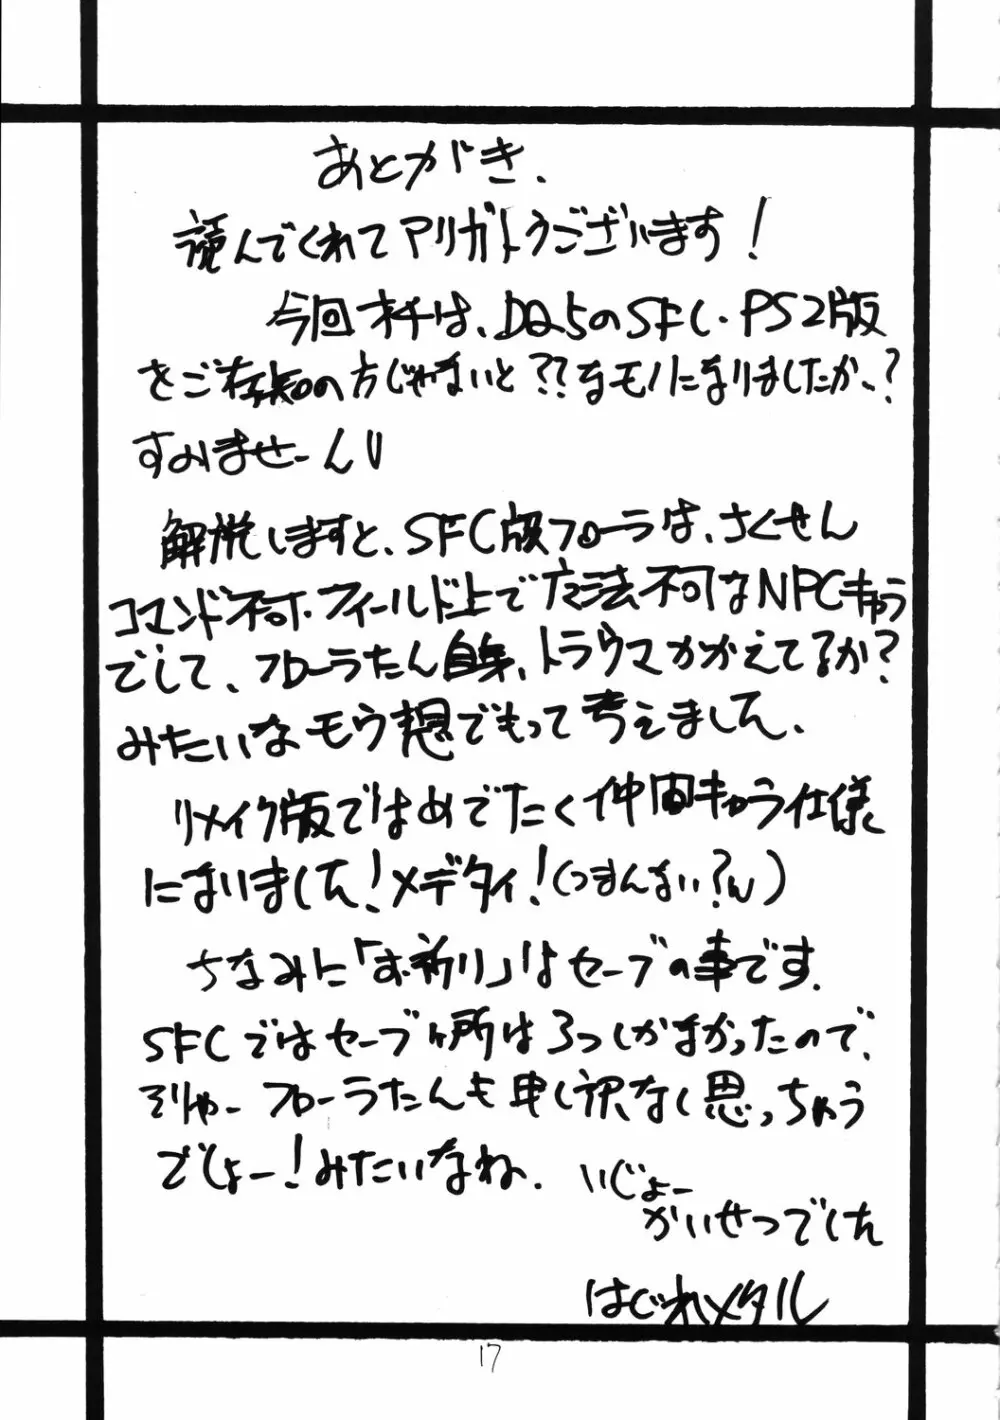 あとがき、
読んでくれてアリガトうございます！
今回オチは、DQ5のSFC・PS2版
をご存知の方じゃないと??なモノになりましたか、?
すみませーん
解説しますと、SFC版フローラは、さくせん
コマンド不可・フィールド上で魔法不可なNPCキャラ
でして、フローラたん自身、トラウマかかえてるか?
みたいなモウ想でもって考えました、
リメイク版ではめでたく仲間キャラ仕様
になりました!メデタイ!(つまんない?ん)
ちなみに「お祈り」はセーブの事です.
SFCではセーブヶ所は3つしかなかったので、
そりゃーフローラたんも申し訳なく思っちゃう
でしょー!みたいなね.
いじょー
かいせつでした
はぐれメタル
17